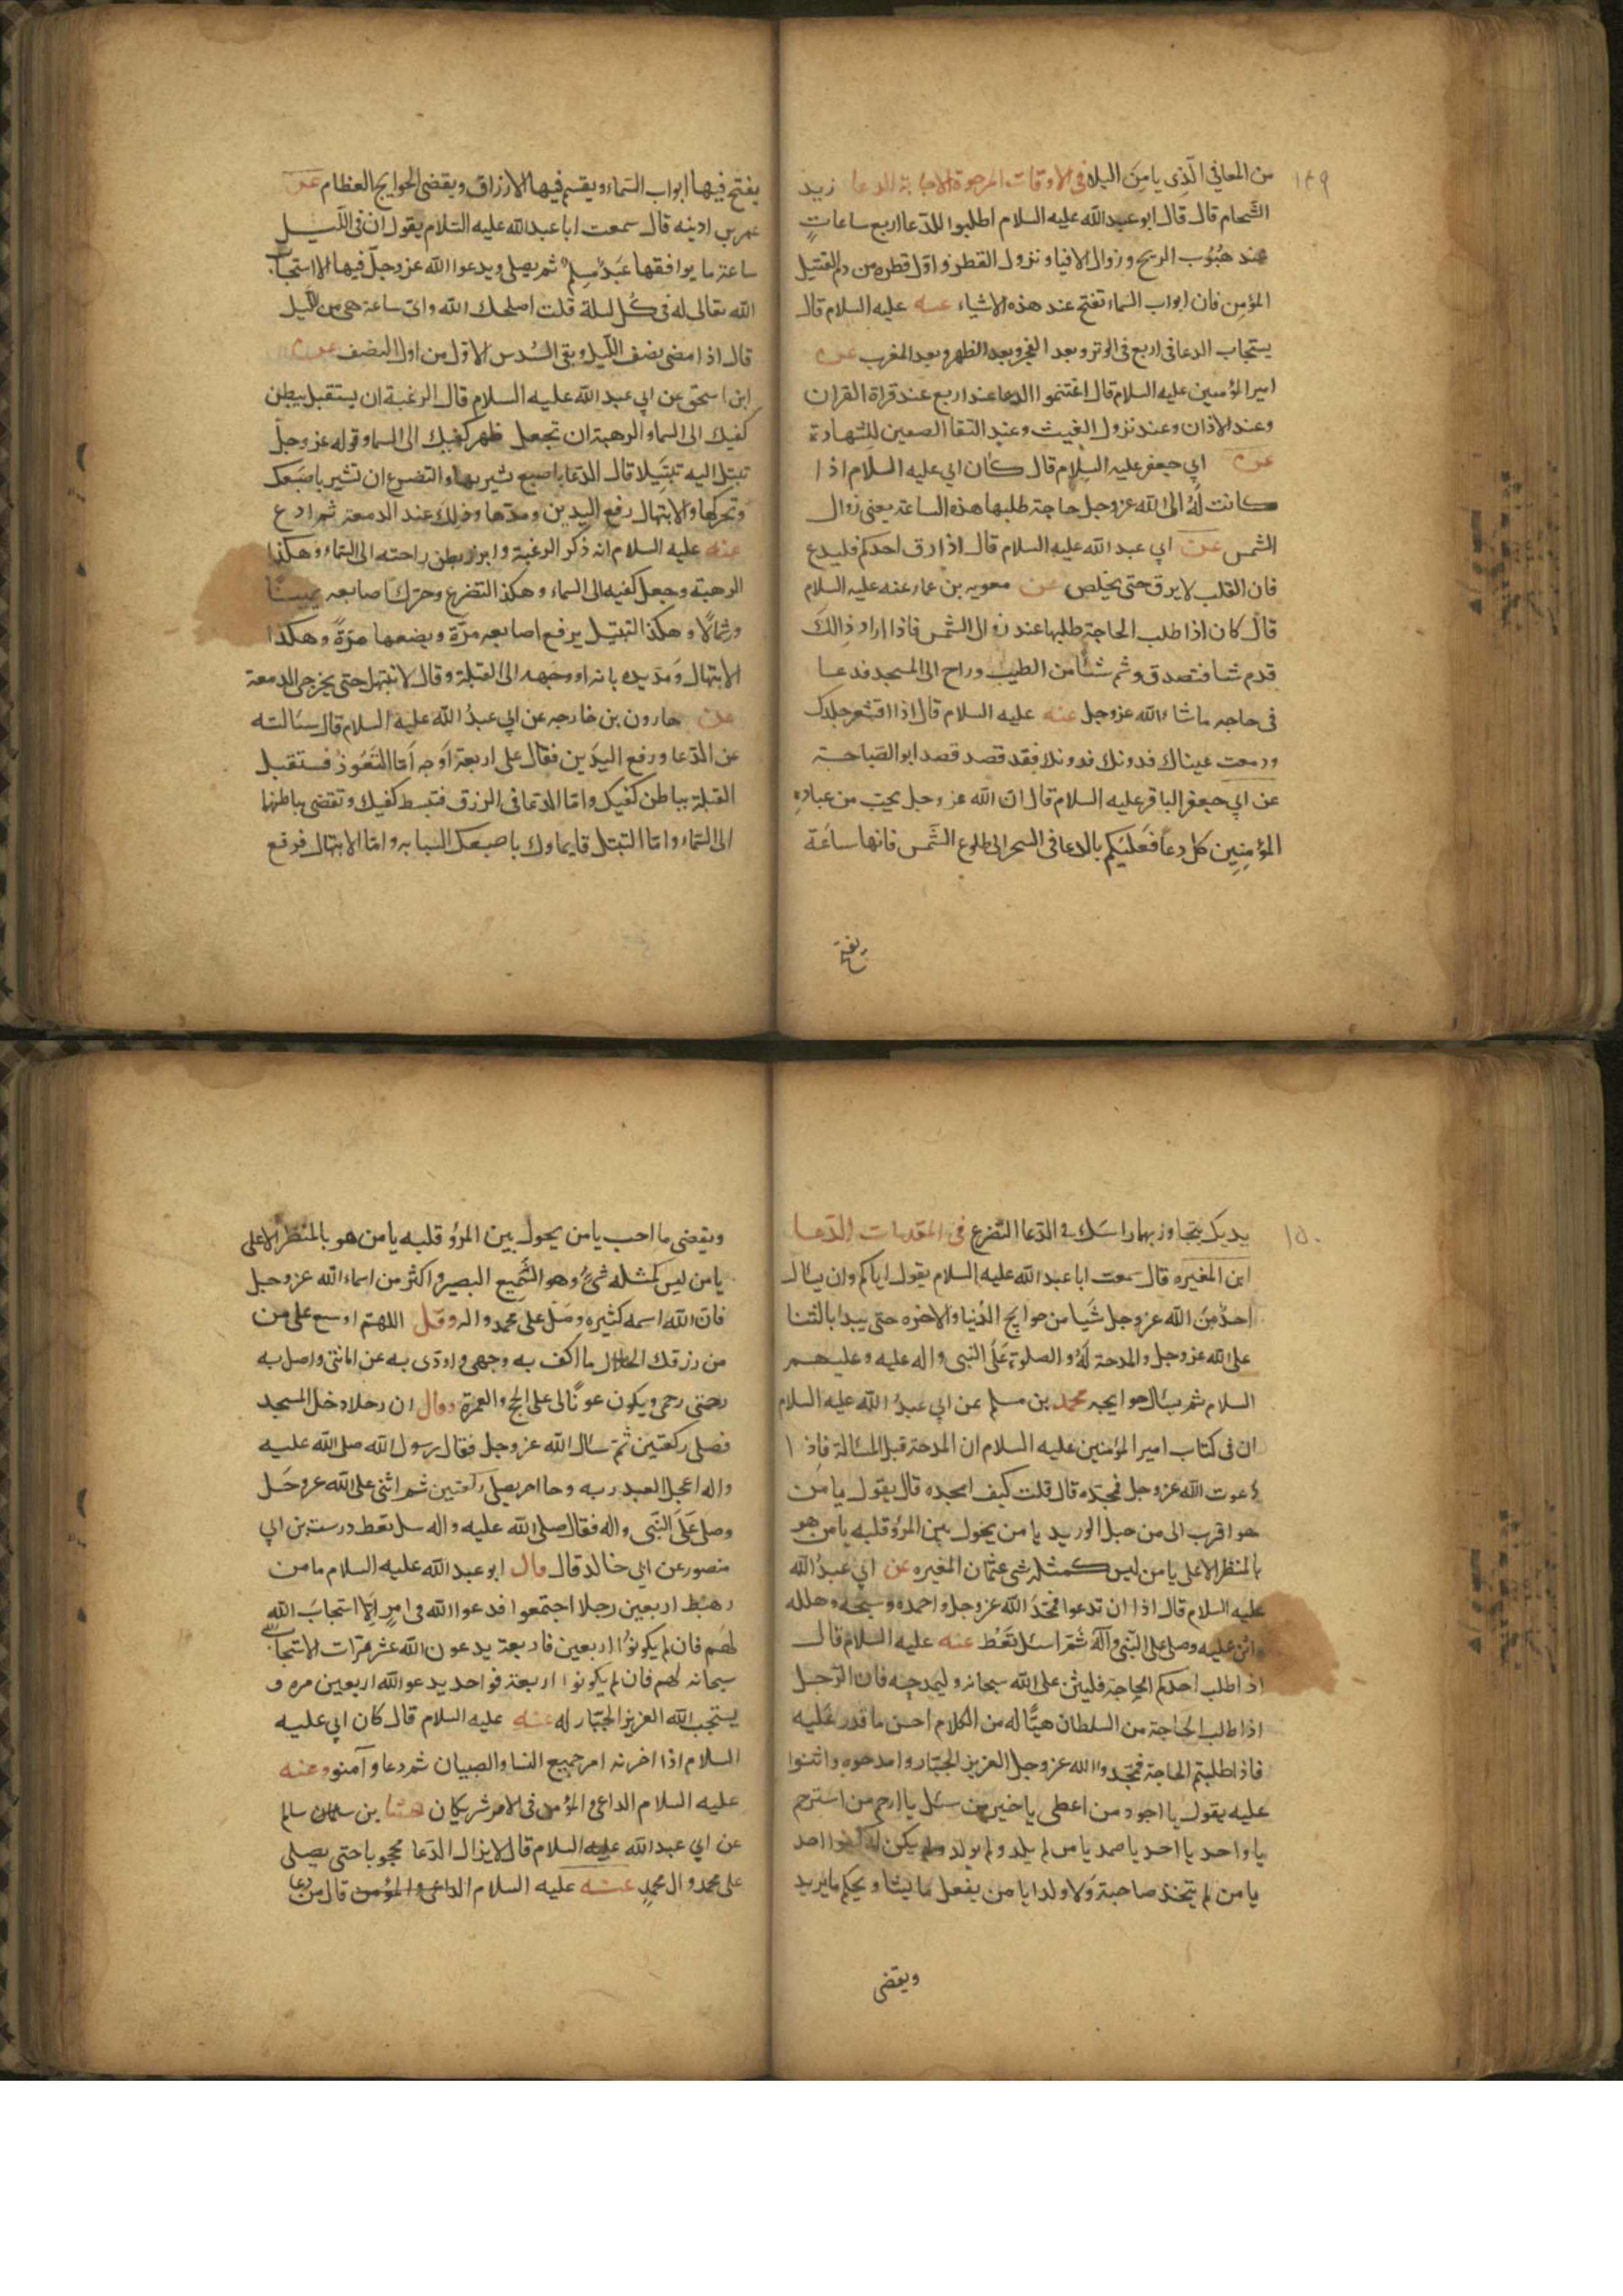 ١٤٩
من المعافي الذي يامن البلا في الاوقات المرجوة الاجابة الدعا زيد
الشحام قال قال ابو عبد الله عليه السلام اطلبوا للدعا اربع ساعات
عند هبوب الريح وزوال الافيا ونزول القطر واول قطره من دم القتيل
المؤمن فان ابواب السماء تفتح عند هذه الاشياء عنه عليه السلام قال
يستجاب الدعا في اربع في الوتر وبعد الفجر وبعد الظهر وبعد المغرب عن
امير المؤمنين عليه السلام قال اغتنموا الدعا عند اربع عند قراة القران
وعند الاذان وعند نزول الغيث وعند التقا الصفين للشهادة
عن ابي جعفر عليه السلام قال كان ابي عليه السلام اذا
كانت له الى الله عز وجل حاجة طلبها هذه الساعة يعني زوال
الشمس عن ابي عبد الله عليه السلام قال اذا رق احدكم فليدع
فان القلب لا يرق حتى يخلص عن معويه بن عمار عنه عليه السلام
قال كان اذا طلب الحاجة طلبها عند زوال الشمس فاذا اراد ذالك
قدم شيا فتصدق وشم شيئا من الطيب وراح الى المسجد فدعا
في حاجه ما شاء الله عز وجل عنه عليه السلام قال اذا اقشعر جلدك
ودمعت عيناك فدونك فدونك فقد قصد قصد ابو الصباحة
عن ابي جعفر الباقر عليه السلام قال ان الله عز وجل يحب من عباده
المؤمنين كل دعا فعليكم بالدعا في السحر الى طلوع الشمس فانها ساعة
يفتح فيها ابواب السماء ويقسم فيها الارزاق ويقضى الحوايج العظام عن
عمر بن ادينه قال سمعت ابا عبد الله عليه السلام يقول ان في الليل
ساعة ما يوافقها عبد مسلم ثم يصلي ويدعوا الله عز وجل فيها الا استجاب
الله تعالى له في كل ليلة قلت اصلحك الله واي ساعة هي من الليل
قال اذا مضى نصف الليل وبقى السدس الاول من اول النصف عن
ابن اسحق عن ابي عبد الله عليه السلام قال الرغبة ان يستقبل ببطن
كفيك الى السماء والرهبة ان تجعل ظهر كفيك الى السما وقوله عز وجل
تبتل اليه تبتيلا قال الدعا باصبع تشير بها والتضرع ان تشير باصبعك
وتحركها والابتهال رفع اليدين ومدها وذلك عند الدمعة ثم ادع
عنه عليه السلام انه ذكر الرغبة وابرز بطن راحته الى السماء وهكذا
الرهبة وجعل كفيه الى السماء وهكذا التضرع وحرك اصابعه يمينا
وشمالا وهكذا التبتل يرفع اصابعه مرة ويضعها مرة وهكذا
الابتهال ومد يده بانه او وجهه الى القبلة وقال لا تبتهل حتى يخرجى الدمعة
عن هارون بن خارجه عن ابي عبد الله عليه السلام قال سئالته
عن الدعا ورفع اليدين فقال على اربعة اوجه اما التعوذ فستقبل
القبلة بباطن كفيك واما الدعا في الرزق فتبسط كفيك وتقضى بباطنها
الى السماء واما التبتل فايماوك باصبعك السبابه واما الابتهال فرفع
يفتح
١٥٠
يديك يتجاوز بهما راسك في الدعا التضرع في المقدمات الدعا
ابن المغيره قال سمعت ابا عبد الله عليه السلام يقول اياكم وان يسئال
احد من الله عز وجل شيا من حوايج الدنيا والاخره حتى يبدا بالثنا
على الله عز وجل والمدحة له والصلوة على النبي واله عليه وعليهم
السلام ثم يسئال حوايجه محمد بن مسلم عن ابي عبد الله عليه السلام
ان في كتاب امير المؤمنين عليه السلام ان المدحة قبل المسئالة فاذا
دعوت الله عز وجل فمجده قال قلت كيف امجده قال يقول يا من
هو اقرب الى من حبل الوريد يا من يحول بين المرؤ قلبه يا من هو
بالمنظر الاعلى يا من ليس كمثله شى عثمان المغيره عن ابي عبد الله
عليه السلام قال اذا ان تدعوا فمجد الله عز وجل واحمده وسبحه وهلله
واثن عليه وصل على النبى واله ثم اسئل تعط عنه عليه السلام قال
اذا طلب احدكم الحاجة فليثن على الله سبحانه وليمدحه فان الرجل
اذا طلب الحاجة من السلطان هيا له من الكلام احسن ما قدر عليه
فاذا طلبتم الحاجة فمجدوا الله عز وجل العزيز الجبار وامدحوه واثنوا
عليه يقول يا اجود من اعطى يا خير من سئل يا ارحم من استرحم
يا واحد يا احد يا صمد يا من لم يلد ولم يولد ولم يكن له كفوا احد
يا من لم يتخذ صاحبة ولا ولدا يا من يفعل ما يشا ويحكم ما يريد
ويقضى
ويقضى ما احب يا من يحول بين المرؤ قلبه يا من هو بالمنظر الاعلى
يا من ليس كمثله شئ وهو السميع البصير واكثر من اسماء الله عز وجل
فان الله اسمه كثيره وصل على محمد واله وقل اللهم اوسع على من
من رزقك الحلال ما اكف به وجهى واودى به عن امانتى واصل به
رحمتى رحمى ويكون عونا لى على الحج والعمرة وقال ان رجلا دخل المسجد
فصلى ركعتين ثم سئال الله عز وجل فقال رسول الله صلى الله عليه
واله اعجل العبد ربه وجا اخر يصلى ركعتين ثم اثنى على الله عز وجل
وصلى على النبى واله فقال صلى الله عليه واله سل تعط درست بن ابي
منصور عن ابى خالد قال قال ابو عبد الله عليه السلام ما من
رهط اربعين رجلا اجتمعوا فدعوا الله فى امر الا استجاب الله
لهم فان لم يكونوا اربعين فاربعة يدعون الله عشر مرات الا استجاب الله
سبحانه لهم فان لم يكونوا اربعة فواحد يدعو الله اربعين مره و
يستجب الله العزيز الجبار له عنه عليه السلام قال كان ابي عليه
السلام اذا احزنه امر جميع النسا والصبيان ثم دعا وآمنوا وعنه
عليه السلام الداعى والمؤمن فى الامر شريكان هشا بن سالم
عن ابي عبد الله عليه السلام قال لا يزال الدعا محجوبا حتى يصلى
على محمد وال محمد عنه عليه السلام الداعى والمؤمن قال من دعا